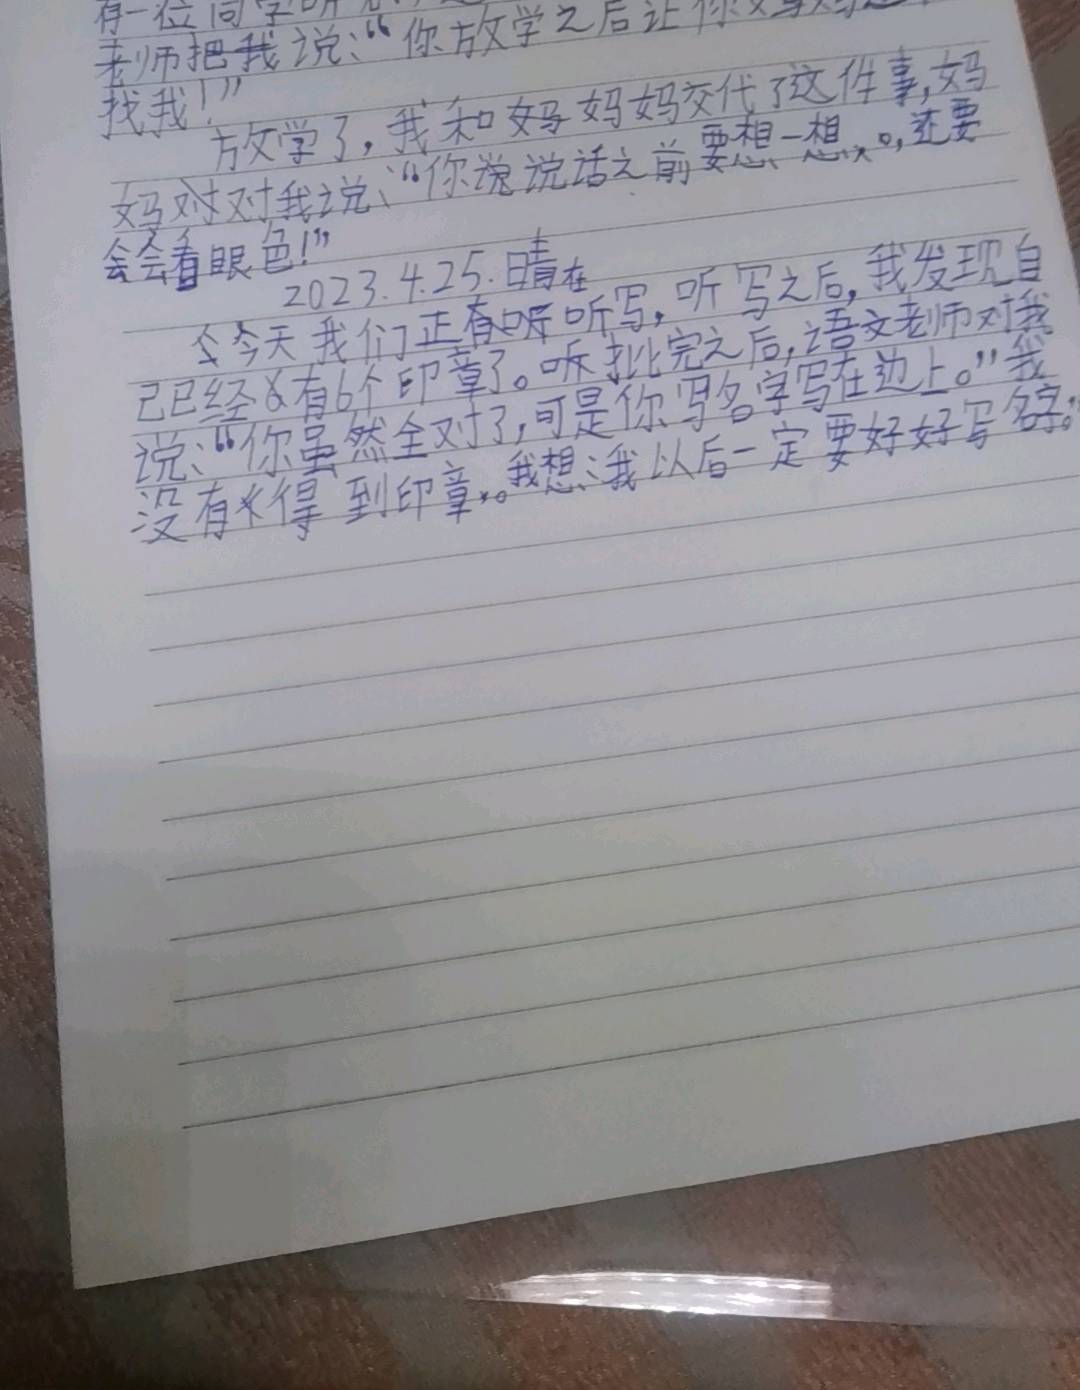 有一位同学听
老师把我说：“你放学之后让你妈妈
找我！”
放学了，我和妈妈妈交代了这件事，妈
妈对对我说：“你说说话之前要想一想，。，还要
会会看眼色！”
2023.4.25.晴在
今今天我们正有听听写，听写之后，我发现自
己已经有6个印章了。听批完之后，语文老师对我
说：“你虽然全对了，可是你写名字写在边上。”我
没有得到印章。我想：我以后一定要好好写名字。”